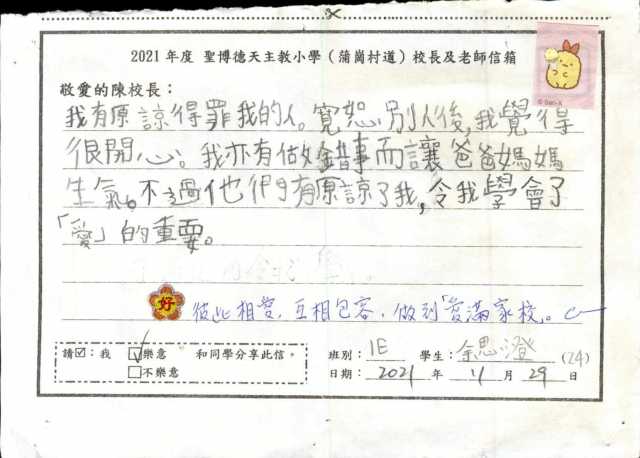 2021 年度 聖博德天主教小學（蒲崗村道）校長及老師信箱
敬愛的陳校長：
我有原諒得罪我的人。寬恕別人後，我覺得
很開心。我亦有做錯事而讓爸爸媽媽
生氣。不過他們有原諒了我，令我學會了
「愛」的重要。
好 彼此相愛，互相包容，做到「愛滿家校」。
請☑：我 ☑樂意 和同學分享此信。
□不樂意
班別：1E 學生：余思澄 (24)
日期：2021 年 11 月 29 日